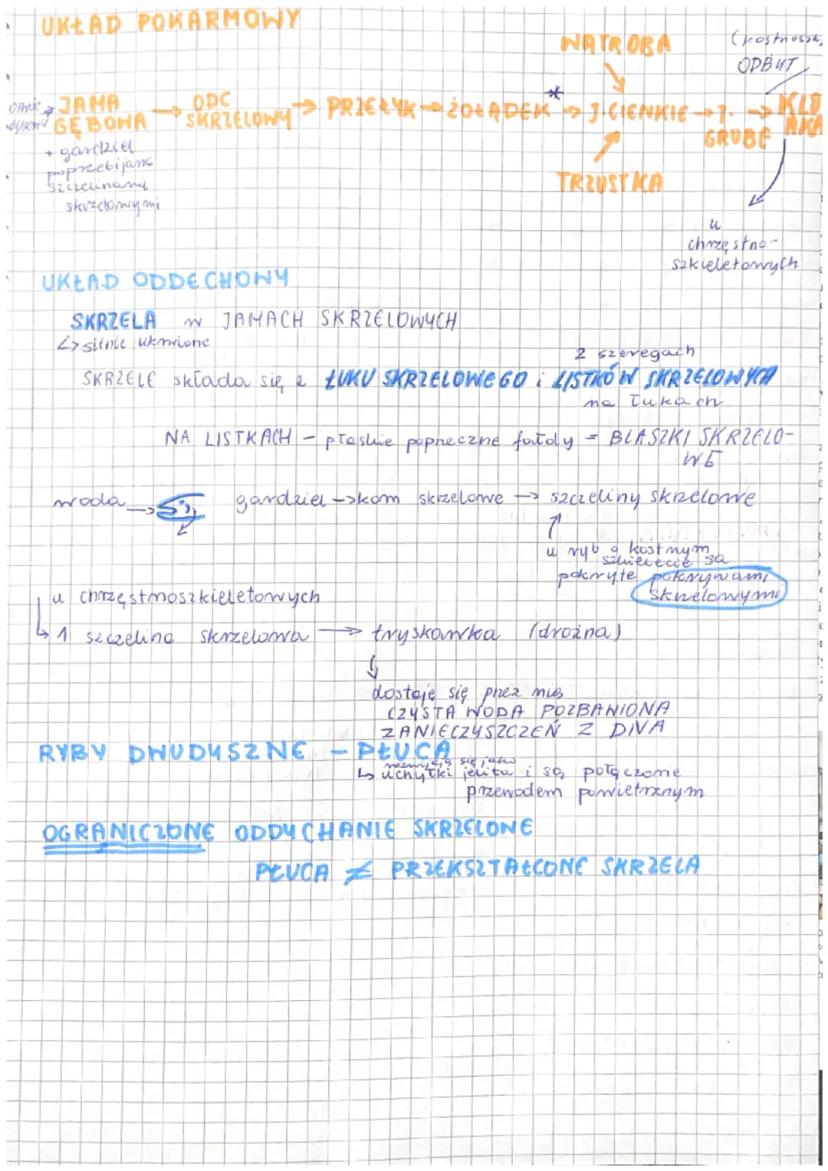 UKŁAD POKARMOWY
WĄTROBA
(kostnoszk.
ODBYT
JAMA GĘBOWA → ODC SKRZELOWY → PRZEŁYK → ŻOŁĄDEK * → J. CIENKIE → J. GRUBE → KLOAKA
+ gardziel
poprzebijana
szczelinami
skrzelowymi
TRZUSTKA
u
chrzęstno-
szkieletowych
UKŁAD ODDECHOWY
SKRZELA w JAMACH SKRZELOWYCH
↳ silnie ukrwione
2 szeregach
SKRZELE składa się z ŁUKU SKRZELOWEGO i LISTKÓW SKRZELOWYCH
na łukach
NA LISTKACH – płaskie poprzeczne fałdy = BLASZKI SKRZELO-
WE
woda → gardziel → kom skrzelowe → szczeliny skrzelowe
↑
u ryb o kostnym
szkielecie są
pokryte pokrywami
skrzelowymi
u chrzęstnoszkieletowych
↳ 1 szczelina skrzelowa → tryskawka (drożna)
↓
dostaje się przez nią
CZYSTA WODA POZBAWIONA
ZANIECZYSZCZEŃ Z DNA
RYBY DWUDYSZNE – PŁUCA
rozwijają się jako
↳ uchyłki jelita i są połączone
przewodem powietrznym
OGRANICZONE ODDYCHANIE SKRZELOWE
PŁUCA ≠ PRZEKSZTAŁCONE SKRZELA